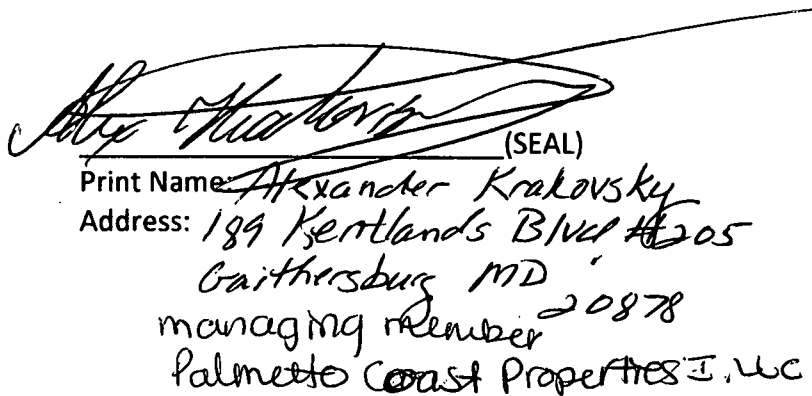 Alex Krakovsky
(SEAL)
Print Name: Alexander Krakovsky
Address: 189 Kentlands Blvd #205
Gaithersburg MD
20878
managing member
Palmetto Coast Properties I, LLC